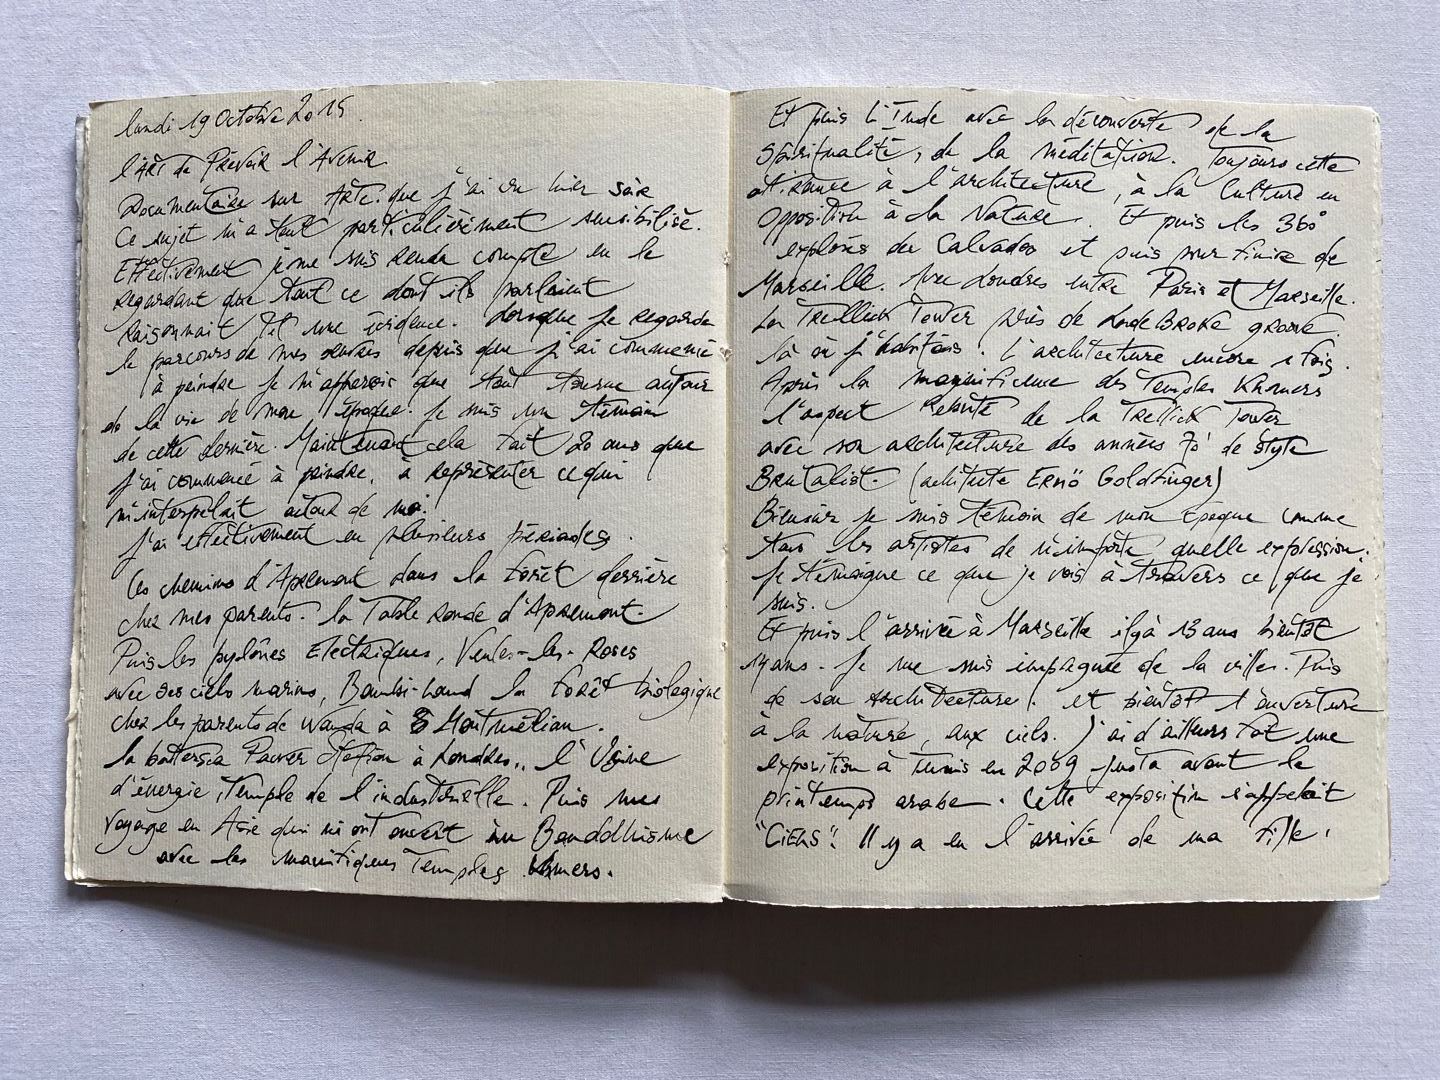 lundi 19 Octobre 2015.
l'ART de Prévoir l'Avenir
Documentaire sur Arte que j'ai vu hier soir
Ce sujet m'a tout particulièrement sensibilisé.
Effectivement je me suis rendu compte en le
regardant que tout ce dont ils parlaient
raisonnait tel une évidence. Lorsque je regarde
le parcours de mes œuvres depuis que j'ai commencé
à peindre je m'apperçois que tout tourne autour
de la vie de mon époque. Je suis un témoin
de cette dernière. Maintenant cela fait 20 ans que
j'ai commencé à peindre, a représenter ce qui
m'interpelait autour de moi.
J'ai effectivement eu plusieurs périodes.
Les chemins d'Apremont dans la forêt derrière
chez mes parents. La Table Ronde d'Apremont.
Puis les pylônes Electriques, Ventes-les-Roses
avec ses ciels marins, Bambi-Land la forêt biologique
chez les parents de Wanda à Montmélian.
La battersea Power Station à Londres,, l'Usine
d'énergie, Temple de l'industrielle. Puis mes
voyage en Asie qui m'ont ouvert au Bouddhisme
avec les magnifiques Temples Khmers.
Et puis l'Inde avec la découverte de la
Spiritualité, de la méditation. Toujours cette
attirance à l'architecture, à la Culture en
opposition à la Nature. Et puis les 360°
explorés du Calvados et puis pour finir de
Marseille. Are entre Paris et Marseille.
La Trellick Tower près de LadeBroke grove
là où j'habitais. L'architecture encore 1 fois.
Après la magnificence des Temples Khmers
l'aspect Rebuté de la Trellick Tower
avec son architecture des années 70' de style
Brutalist. (achitecte Ernö Goldfinger)
Biensûr je suis témoin de mon Epoque comme
tous les artistes de n'importe quelle expression.
Je témoigne ce que je vois à travers ce que je
suis.
Et puis l'arrivée à Marseille il y a 13 ans bientôt
14 ans. Je me suis impregnée de la villes. Puis
de son Architecture. et bientôt l'ouverture
à la nature, aux ciels. J'ai d'ailleurs fait une
exposition à Tunis en 2009 juste avant le
printemps arabe. Cette exposition s'appelait
"Ciels". Il y a eu l'arrivée de ma fille,